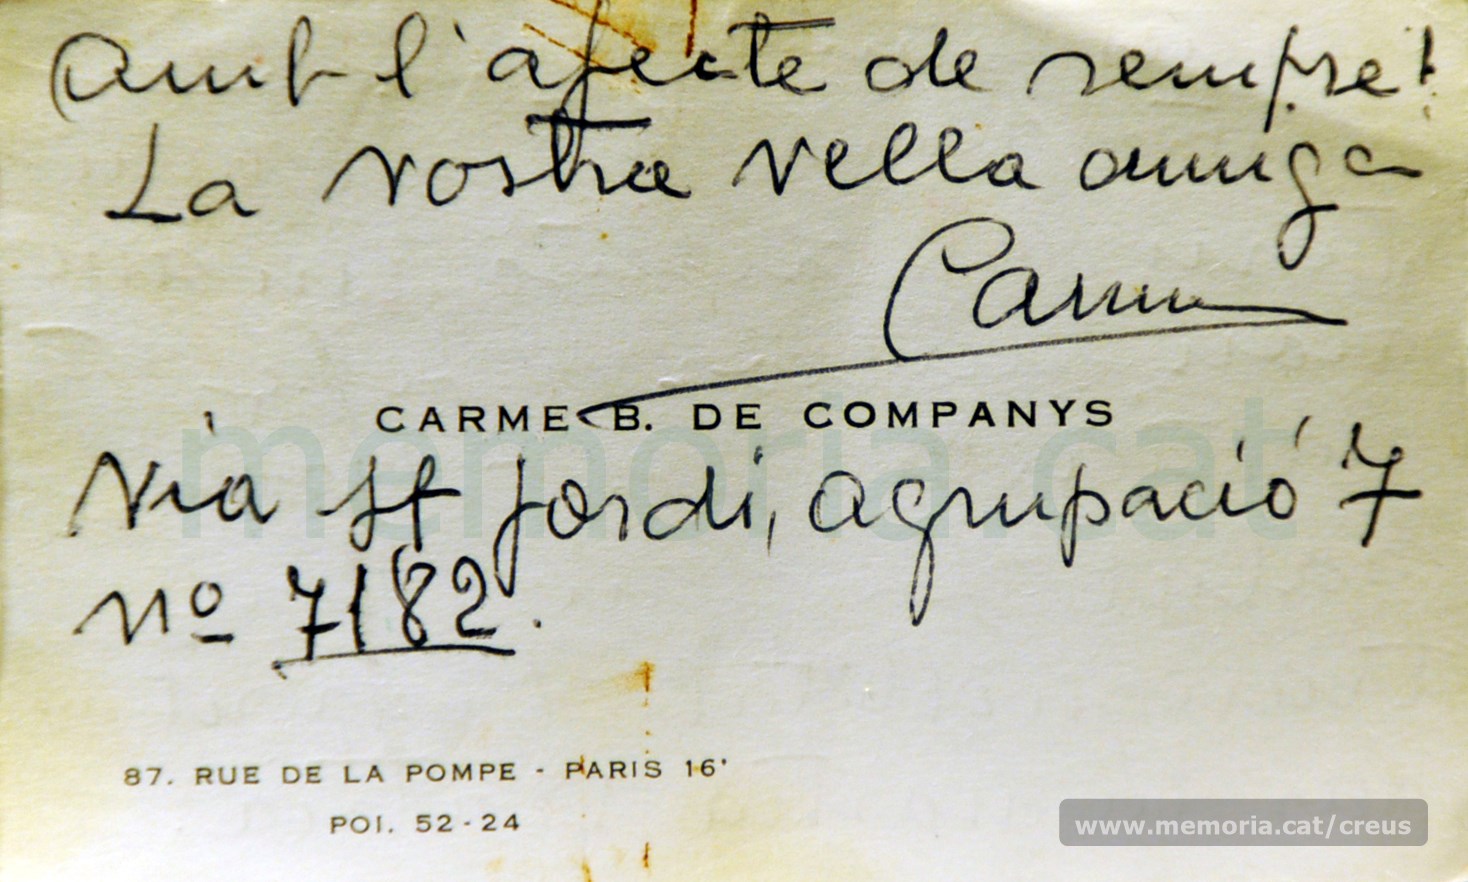 Amb l'afecte de sempre!
La vostra vella amiga
Carme
CARME B. DE COMPANYS
Via St Jordi, agrupació 7
nº 7182.
87. RUE DE LA POMPE - PARIS 16'
POI. 52-24
memoria.cat
www.memoria.cat/creus